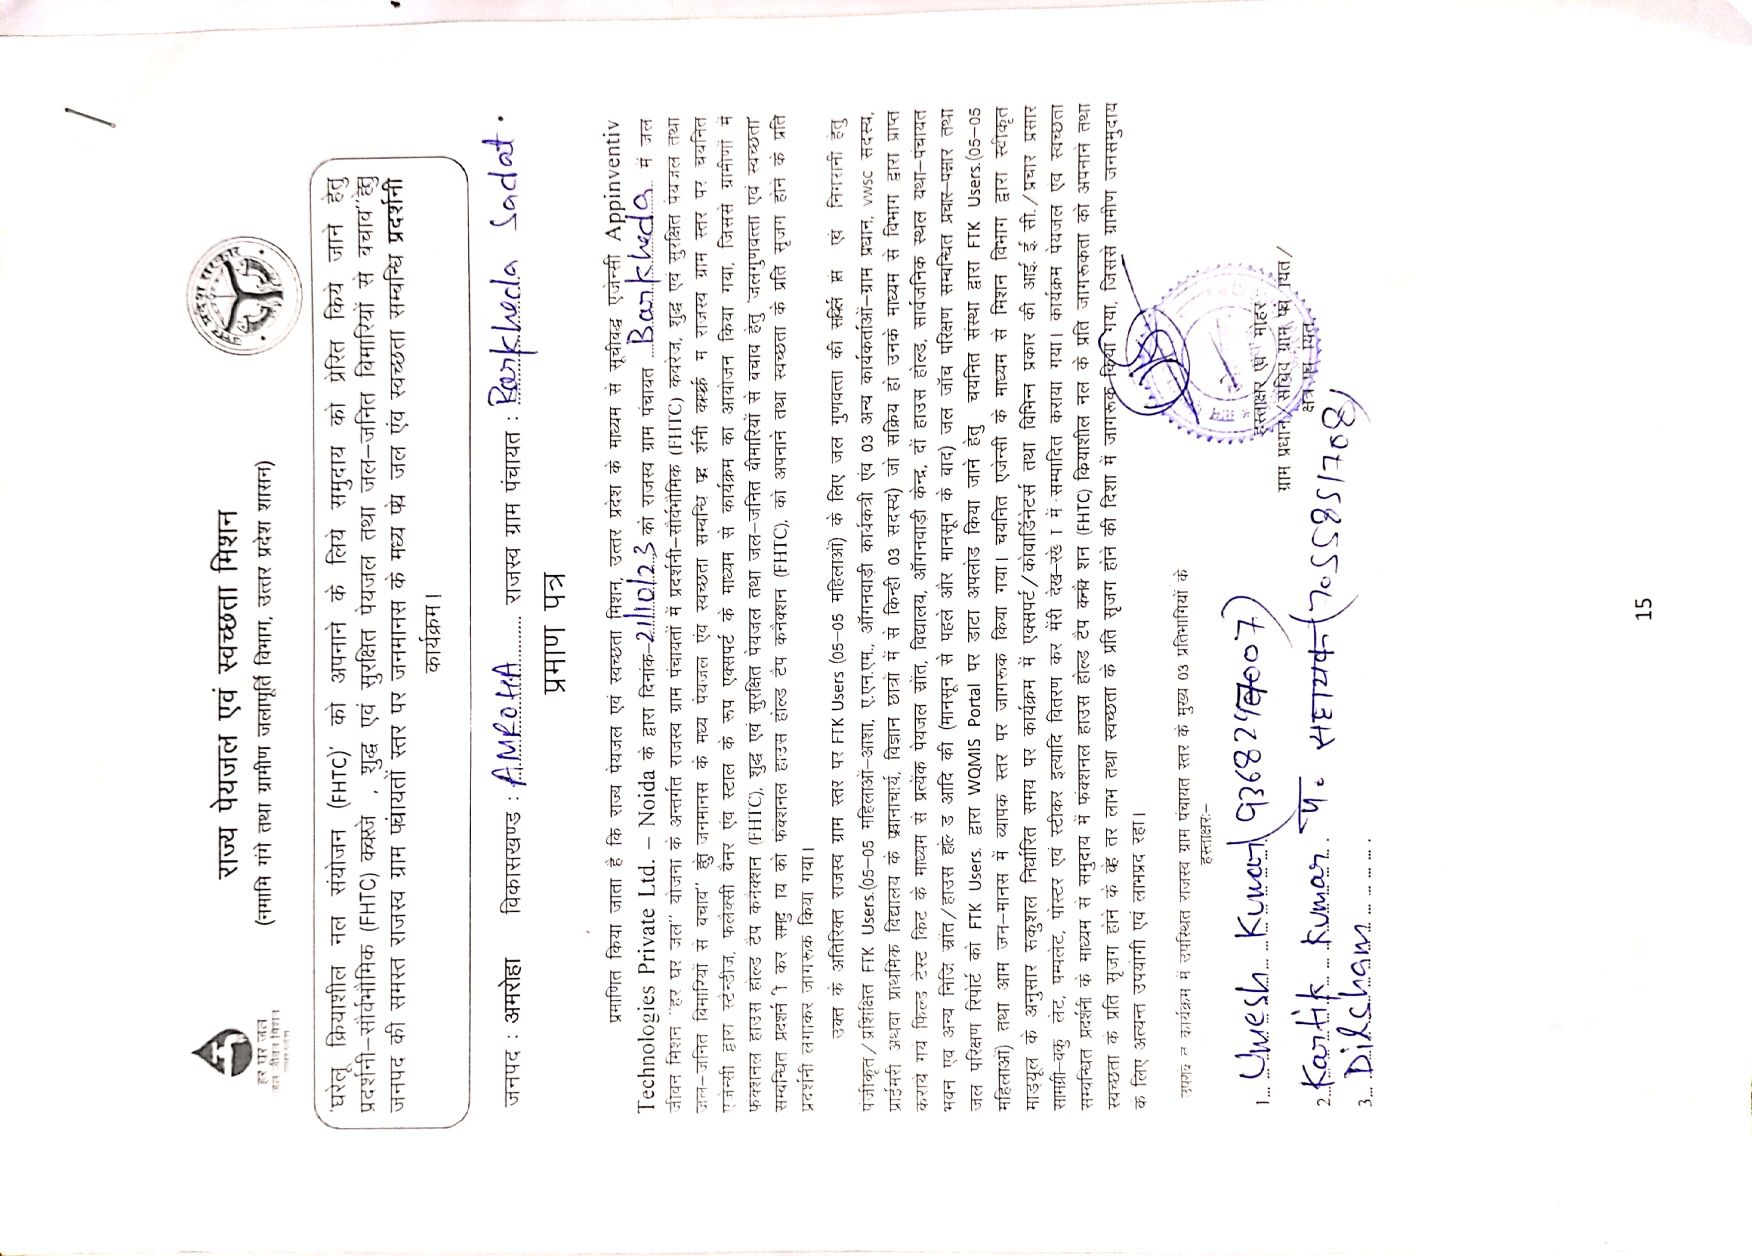 राज्य पेयजल एवं स्वच्छता मिशन
(नमामि गंगे तथा ग्रामीण जलापूर्ति विभाग, उत्तर प्रदेश शासन)
हर घर जल
जल जीवन मिशन
उत्तर प्रदेश सरकार
'घरेलू क्रियाशील नल संयोजन (FHTC)' को अपनाने के लिये समुदाय को प्रेरित किये जाने हेतु
प्रदर्शनी–सार्वभौमिक (FHTC) कवरेज, शुद्ध एवं सुरक्षित पेयजल तथा जल–जनित विमारियों से बचाव" हेतु
जनपद की समस्त राजस्व ग्राम पंचायतों स्तर पर जनमानस के मध्य पेय जल एंव स्वच्छता सम्बन्धि प्रदर्शनी
कार्यक्रम।
जनपद : अमरोहा विकासखण्ड : AMROHA राजस्व ग्राम पंचायत : Barkheda Sadat.
प्रमाण पत्र
प्रमाणित किया जाता है कि राज्य पेयजल एवं स्वच्छता मिशन, उत्तर प्रदेश के माध्यम से सूचीबद्ध एजेन्सी Appinventiv
Technologies Private Ltd. – Noida के द्वारा दिनांक-21/10/23 को राजस्व ग्राम पंचायत Barkheda में जल
जीवन मिशन "हर घर जल" योजना के अन्तर्गत राजस्व ग्राम पंचायतों में प्रदर्शनी–सार्वभौमिक (FHTC) कवरेज, शुद्ध एवं सुरक्षित पेयजल तथा
जल–जनित विमारियों से बचाव" हेतु जनमानस के मध्य पेयजल एंव स्वच्छता सम्बन्धि प्रदर्शनी कार्यक्रम राजस्व ग्राम स्तर पर चयनित
एजेन्सी द्वारा स्टेन्डीज, फ्लेक्सी बैनर एंव स्टाल के रूप एक्सपर्ट के माध्यम से कार्यक्रम का आयोजन किया गया, जिससे ग्रामीणों में
फंक्शनल हाउस होल्ड टैप कनेक्शन (FHTC), शुद्ध एवं सुरक्षित पेयजल तथा जल–जनित बीमारियों से बचाव हेतु जलगुणवत्ता एवं स्वच्छता
सम्बन्धित प्रदर्शनी कर समुदाय को फंक्शनल हाउस होल्ड टैप कनेक्शन (FHTC), को अपनाने तथा स्वच्छता के प्रति सृजग होने के प्रति
प्रदर्शनी लगाकर जागरूक किया गया।
उक्त के अतिरिक्त राजस्व ग्राम स्तर पर FTK Users (05-05 महिलाओं) के लिए जल गुणवत्ता की एवं निगरानी हेतु
पंजीकृत/प्रशिक्षित FTK Users.(05-05 महिलाओं–आशा, ए.एन.एम., आँगनवाड़ी कार्यकत्री एंव 03 अन्य कार्यकर्ताओं–ग्राम प्रधान, vwsc सदस्य,
प्राईमरी अथवा प्राथमिक विद्यालय के प्रधानाचार्य, विज्ञान छात्रों में से किन्ही 03 सदस्य) जो सक्रिय हो उनके माध्यम से विभाग द्वारा प्राप्त
कराये गये फिल्ड टेस्ट किट के माध्यम से प्रत्येक पेयजल स्रोत, विद्यालय, आँगनवाड़ी केन्द्र, दो हाउस होल्ड, सार्वजनिक स्थल यथा–पंचायत
भवन एंव अन्य निजि स्रोत/हाउस होल्ड आदि की (मानसून से पहले और मानसून के बाद) जल जाँच परिक्षण सम्बन्धित प्रचार–प्रसार तथा
जल परिक्षण रिपोर्ट को FTK Users. द्वारा WQMIS Portal पर डाटा अपलोड किया जाने हेतु चयनित संस्था द्वारा FTK Users.(05-05
महिलाओं) तथा आम जन–मानस में व्यापक स्तर पर जागरूक किया गया। चयनित एजेन्सी के माध्यम से मिशन विभाग द्वारा स्वीकृत
माड्यूल के अनुसार सकुशल निर्धारित समय पर कार्यक्रम में एक्सपर्ट/कोवार्डिनेटर्स तथा विभिन्न प्रकार की आई.ई.सी./प्रचार प्रसार
सामग्री–बुकलेट, पम्पलेट, पोस्टर एवं स्टीकर इत्यादि वितरण कर मेरी देख–रेख में सम्पादित कराया गया। कार्यक्रम पेयजल एंव स्वच्छता
सम्बन्धित प्रदर्शनी के माध्यम से समुदाय में फंक्शनल हाउस होल्ड टैप कनेक्शन (FHTC) क्रियाशील नल के प्रति जागरूकता को अपनाने तथा
स्वच्छता के प्रति सृजग होने के बेहतर लाभ तथा स्वच्छता के प्रति सृजग होने की दिशा में जागरूक किया गया, जिससे ग्रामीण जनसमुदाय
के लिए अत्यन्त उपयोगी एवं लाभप्रद रहा।
कार्यक्रम में उपस्थित राजस्व ग्राम पंचायत स्तर के मुख्य 03 प्रतिभागियों के
हस्ताक्षर:–
हस्ताक्षर एंव मोहर
ग्राम प्रधान/सचिव ग्राम पंचायत/
क्षेत्र पंचायत
1. Umesh Kumar
2. Kartik Kumar पं. सहायक (7055851708)
3. Dilsham
15